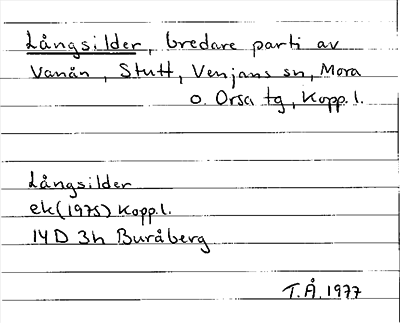 Långsilder, bredare parti av
Vanån, Stutt, Venjans sn, Mora
o. Orsa tg, Kopp. l.
Långsilder
ek (1975) Kopp. l.
14D 3h Buråberg
T.Å. 1977